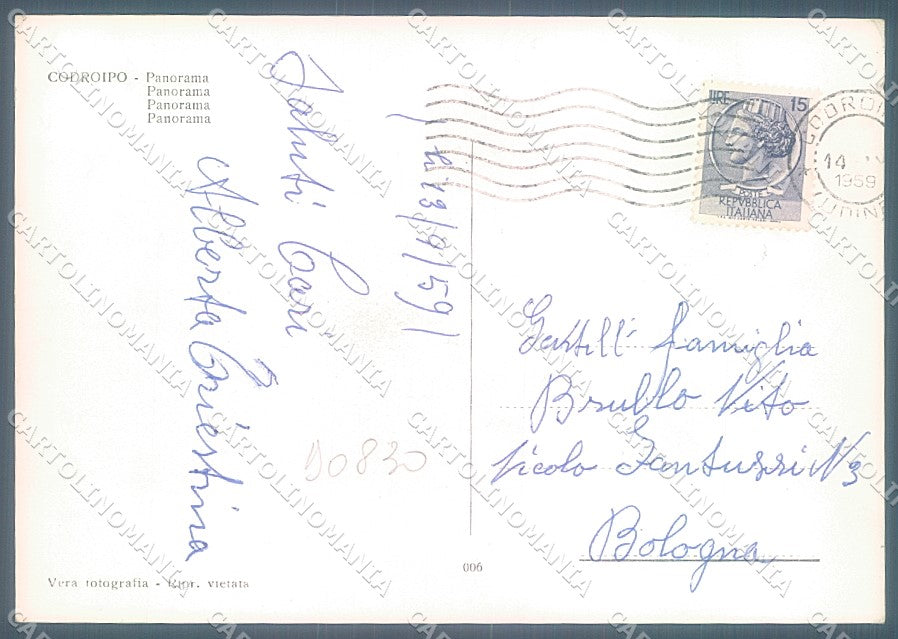 CODROIPO - Panorama
Panorama
Panorama
Panorama
Saluti Cari
Alberta Triestina
li 13/9/59
LIRE 15
POSTE
REPVBBLICA
ITALIANA
14
1959
Gentill. famiglia
Brullo Vito
Vicolo Fantuzzi N 3
Bologna
D0830
006
Vera fotografia - Ripr. vietata
CARTOLINOMANIA